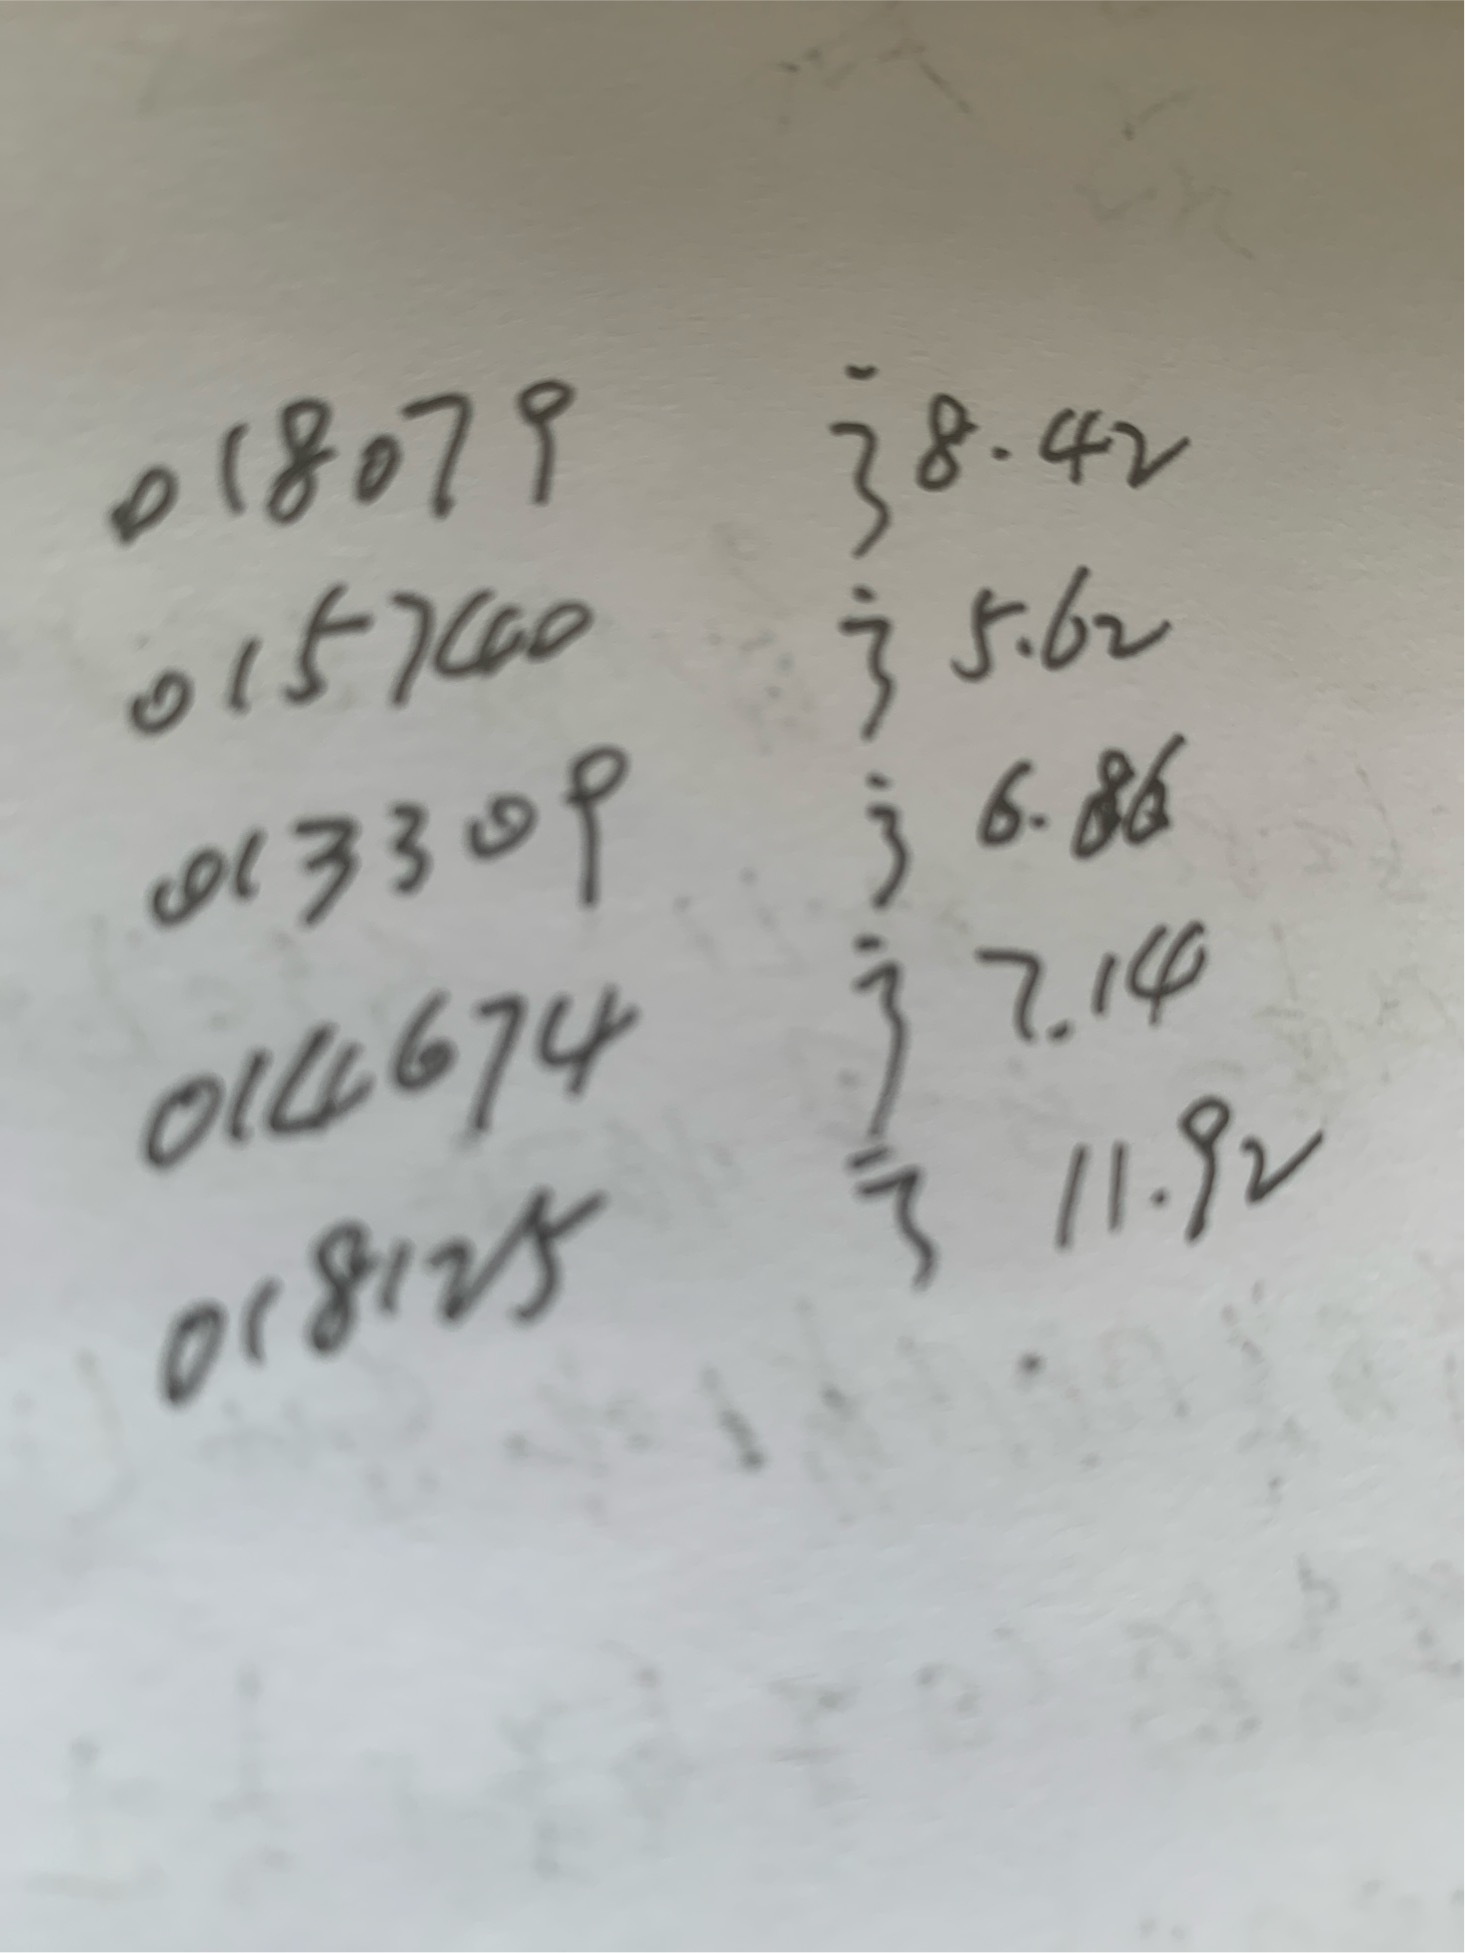 018079 引 8.42
015740 引 5.62
013309 引 6.86
014674 引 7.14
018125 引 11.92